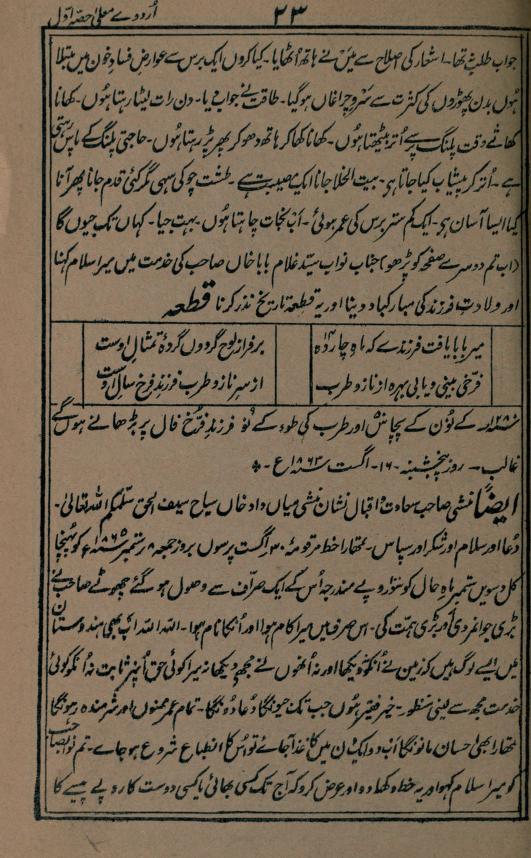 ۲۳
اُردوے معلیٰ حصّہ اوّل
جواب طلب تھا۔ اشعار کی اصلاح سے میں نے ہاتھ اُٹھایا۔ کیا کروں ایک برس سے عوارض فساد خون میں مبتلا
ہوں بدن پھوڑوں کی کثرت سے سَرو چراغاں ہوگیا۔ طاقت نے جواب دیا۔ دن رات لیٹا رہتا ہُوں۔ کھانا
کھاتے وقت پلنگ پر سے اُتر بیٹھتا ہوں۔ کھانا کھا کر ہاتھ دھو کر پھر پڑ رہتا ہوں۔ حاجتی پلنگ کے پاس رہتی
ہے۔ اُتر کر پیشاب کیا جاتا ہی۔ بیت الخلا جانا ایک مصیبت ہے۔ طشت چوکی سہی مگر کئی قدم جانا پھر آنا
کیا ایسا آسان ہی۔ ایک کم ستر برس کی عمر ہوئی۔ اب نجات چاہتا ہوں بہت جیا۔ کہاں تک جیوں گا
(اب تم دوسرے صفحہ کو پڑھو) جناب نواب سیّد غلام بابا خاں صاحب کی خدمت میں میرا سلام کہنا
اور ولادتِ فرزند کی مبارکباد دینا اور یہ قطعۂ تاریخ نذر کرنا قطعہ
میر بابا یافت فرزندے کہ ماہِ چاردہ
بر فراز لوح گردوں گردۂ تمثال اوست
فرّخی بینی و یابی بہرہ از ناز و طرب
از سرِ ناز و طرب فرزندِ فرخ سالِ اوست
کے نُون کے پچاس اور طرب کی طوے کے نَو فرزندِ فرّخ فال پر بڑھانے ہوں گے
غالب۔ روز پنجشنبہ۔ ۱۶۔ اگست ۱۸۶۳ع۔
ایضًا منشی صاحب سعادت و اقبال نشان منشی میاں داد خاں سیاح سیف الحق سلّمکم اللہ تعالیٰ۔
دُعا اور سلام اور شکر اور سپاس۔ تمھارا خط مرقومہ ۳۰۔ اگست پرسوں بروز جمعہ ۸ ستمبر ۱۸۶۵ع کو پہنچا
کل دسویں ستمبر ماہِ حال کو سَو روپے مندرجہ اُس کے ایک صرّاف سے وصول ہوگئے چھوٹے صاحب نے
بڑی جوانمردی اور بڑی ہمّت کی۔ اس صرف میں میرا کام ہوا اور اُنکا نام ہوا۔ اللہ اللہ اب بھی ہندوستان
میں ایسے لوگ ہیں کہ نہ میں نے اُنکو دیکھا اور نہ اُنھوں نے مجھے دیکھا نہ میرا کوئی حق اُنپر ثابت نہ اُنکو کوئی
خدمت مجھ سے لینی منظور۔ خیر فقیر ہُوں جب تک جیونگا دُعا دونگا۔ تمام عمر ممنون اور شرمندہ رہونگا
تمھارا بھی احسان مانونگا اب دو ایک دن میں کاغذ آجائے تو اُس کا انطباع شروع ہو جاے۔ تم نواب صاحب
کو میرا سلام کہو اور یہ خط دکھلا دو اور عرض کرو کہ آج تک کسی بھائی یا کسی دوست کا روپے پیسے کا